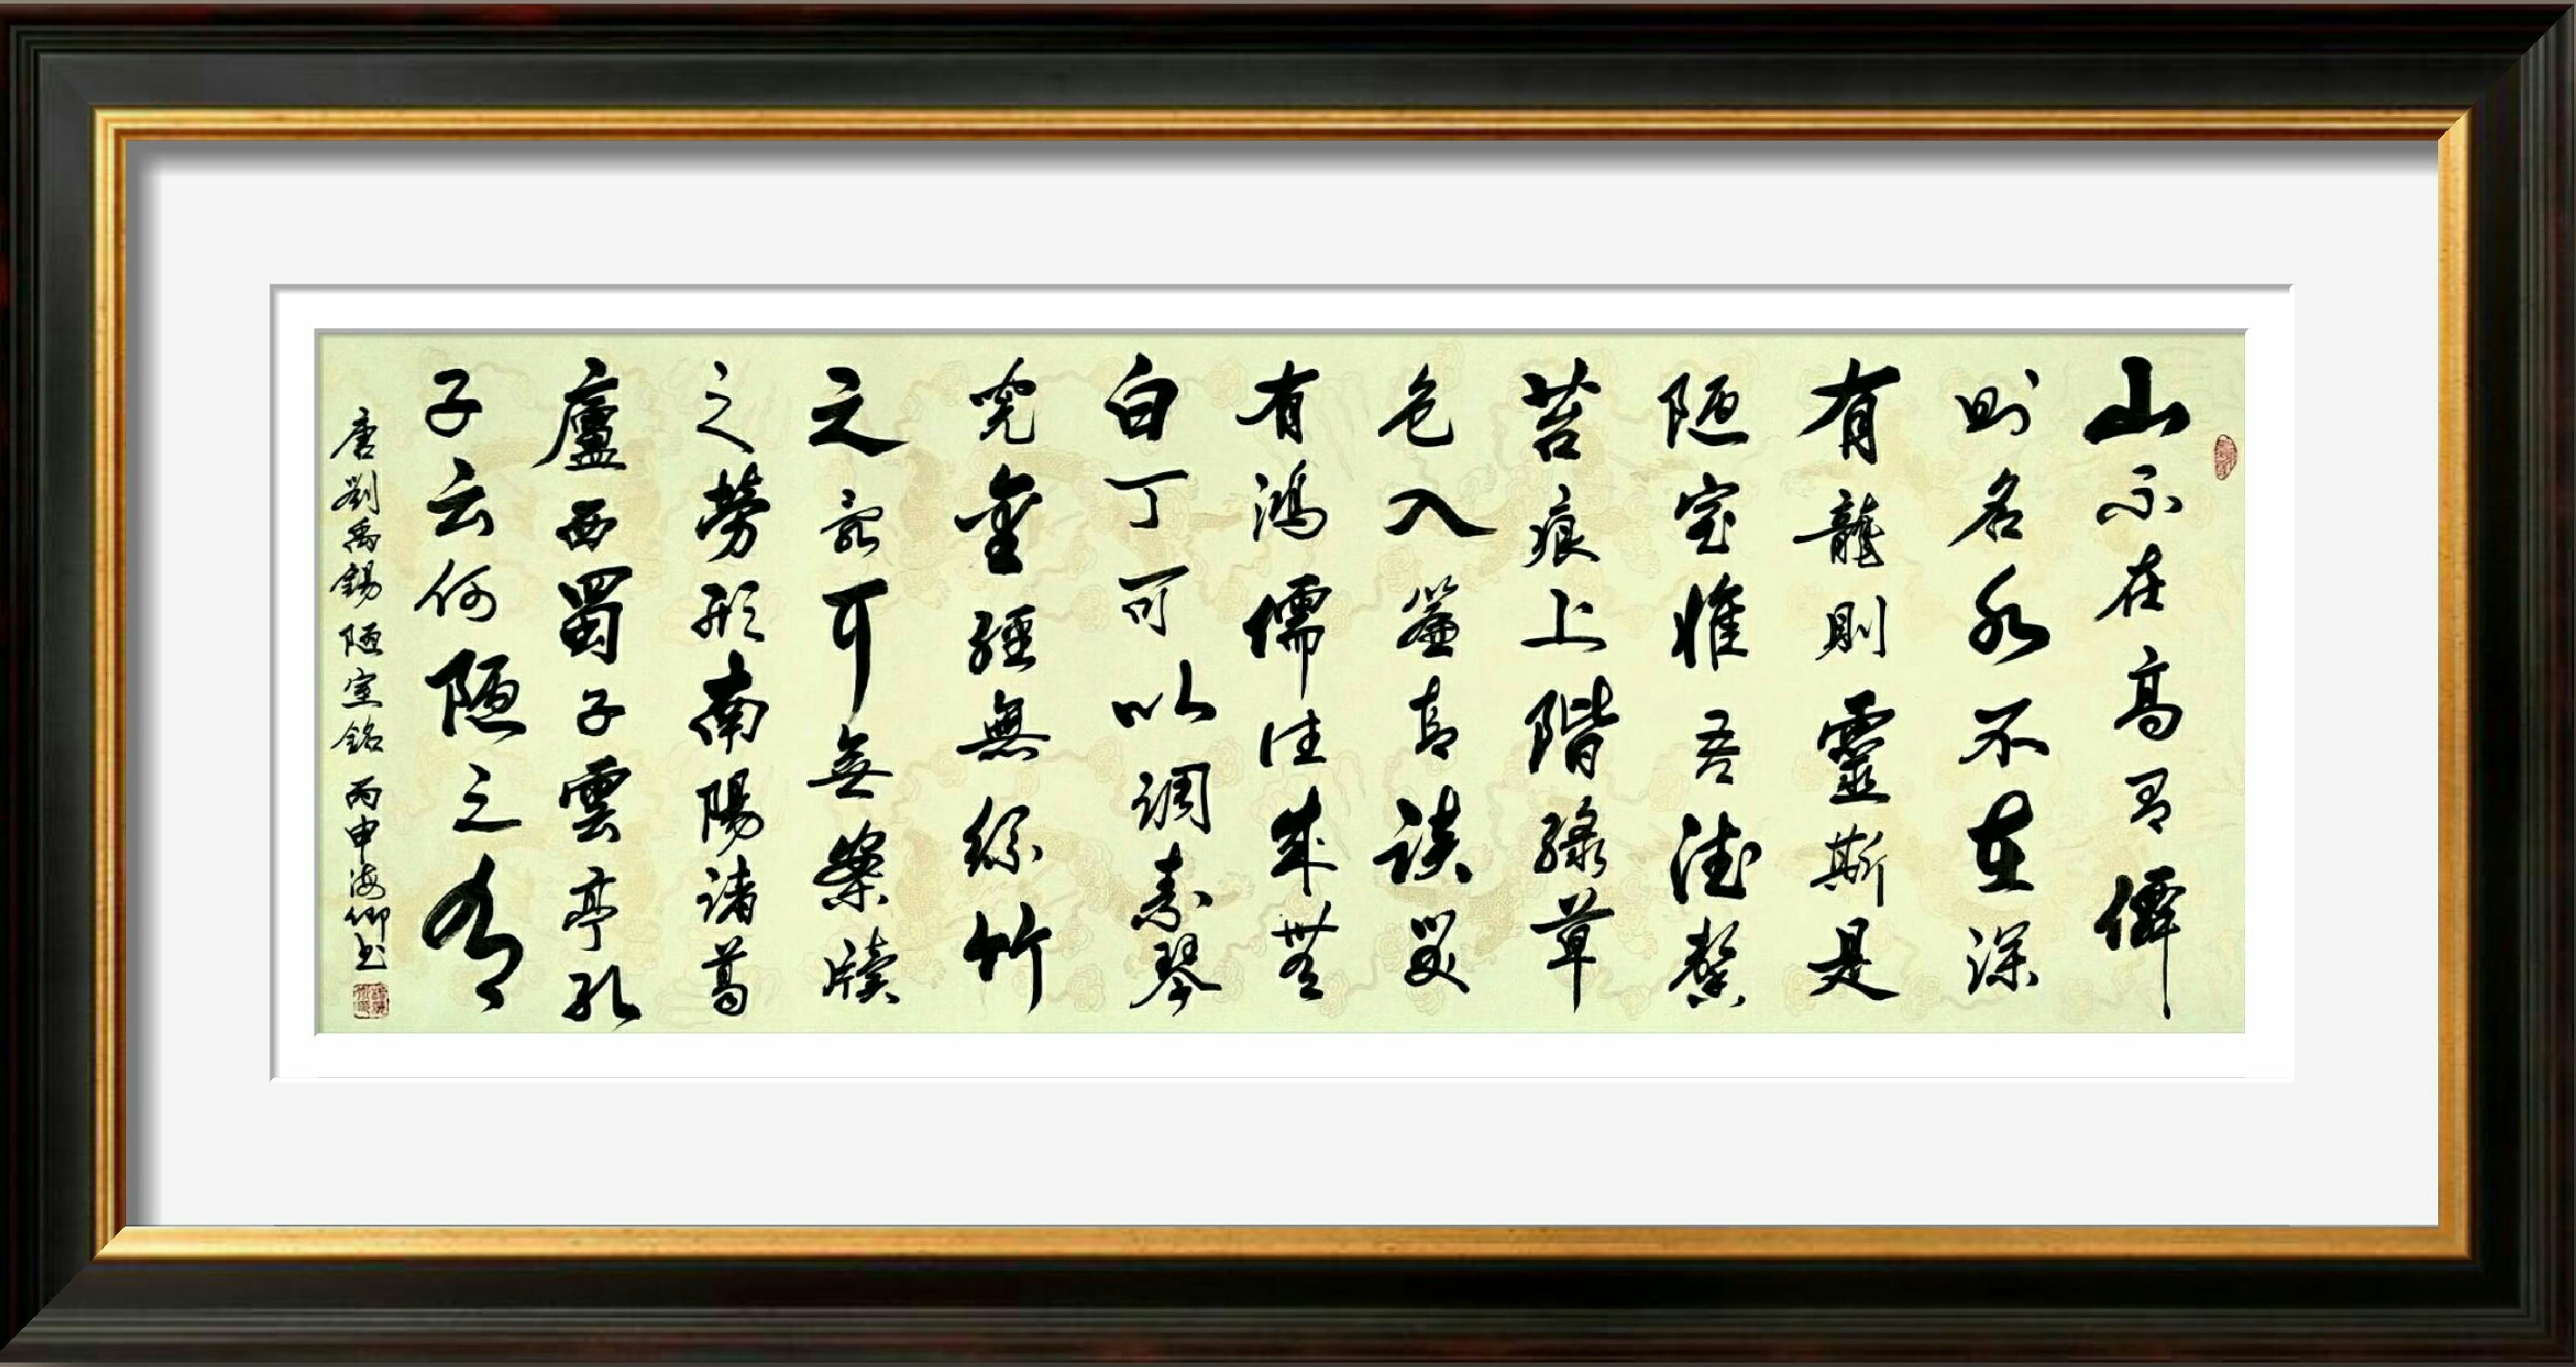 山不在高有僊
則名水不在深
有龍則靈斯是
陋室惟吾德馨
苔痕上階綠草
色入簾青談笑
有鴻儒往來無
白丁可以調素琴
閱金經無絲竹
之亂耳無案牘
之勞形南陽諸葛
廬西蜀子雲亭孔
子云何陋之有
唐劉禹錫陋室銘 丙申海仰書